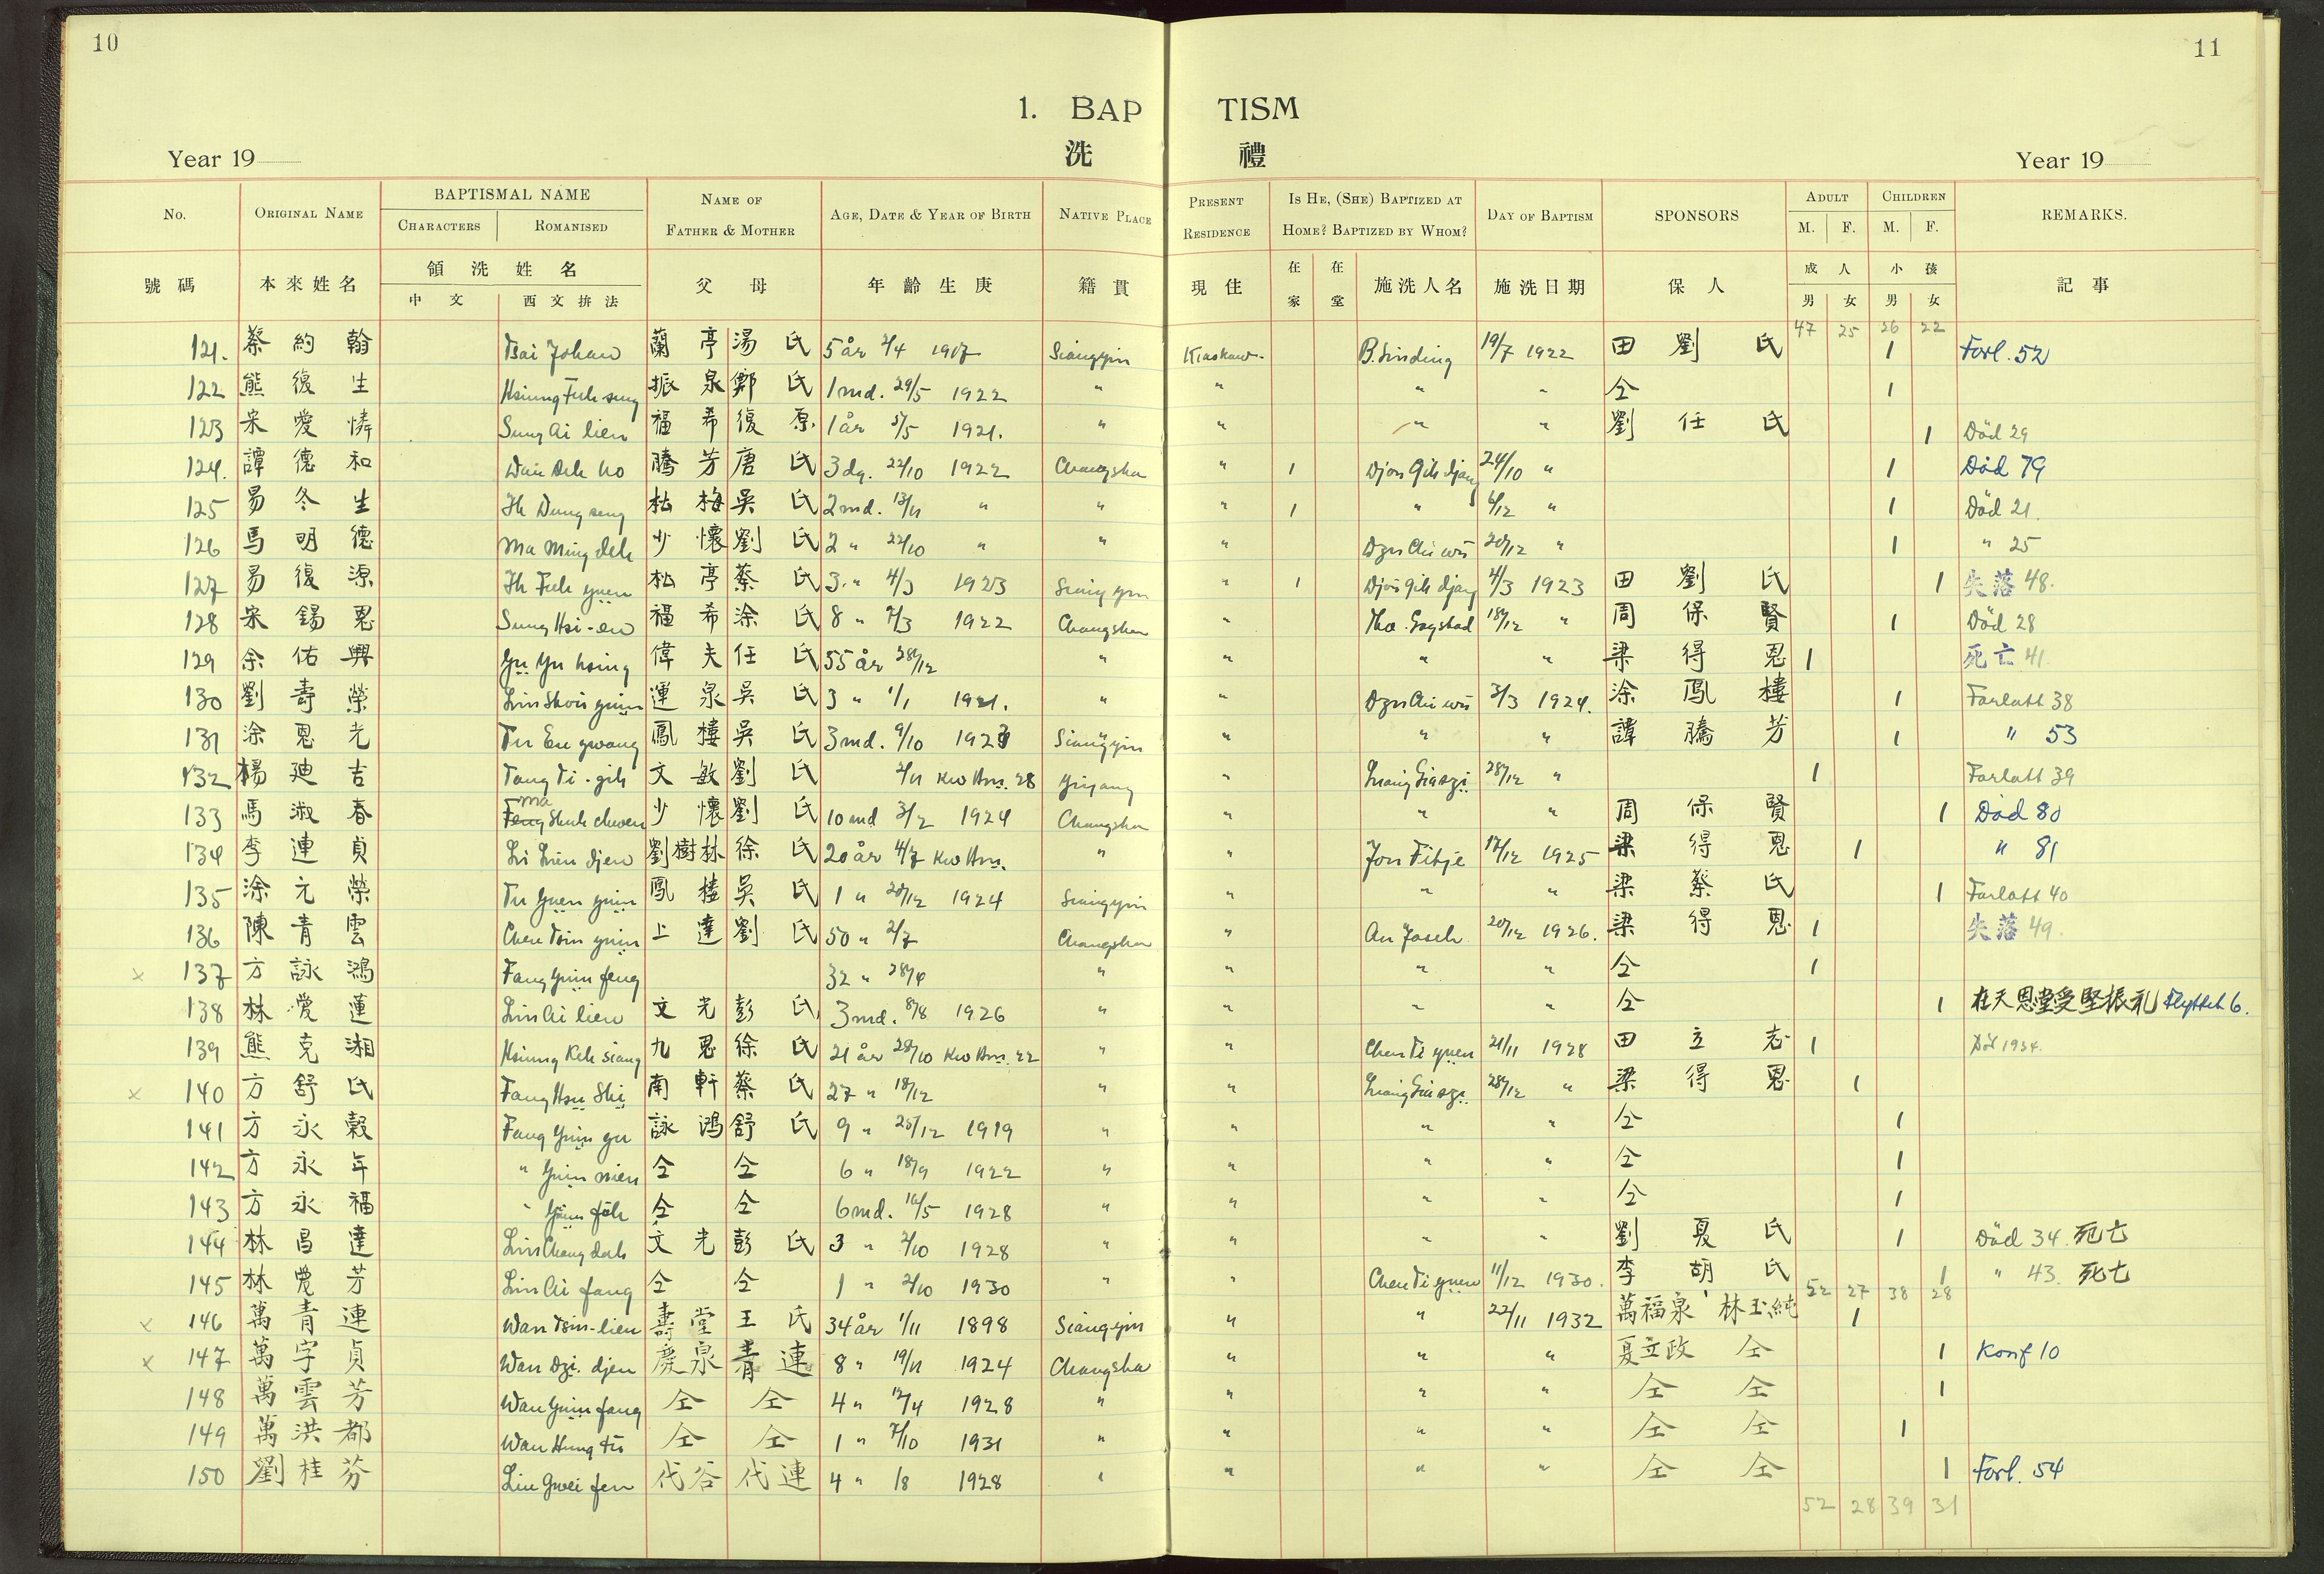 10
11
1. BAP TISM
洗 禮
Year 19
Year 19
No. ORIGINAL NAME BAPTISMAL NAME CHARACTERS ROMANISED NAME OF FATHER & MOTHER AGE, DATE & YEAR OF BIRTH NATIVE PLACE PRESENT RESIDENCE IS HE, (SHE) BAPTIZED AT HOME? BAPTIZED BY WHOM? DAY OF BAPTISM SPONSORS ADULT M. F. CHILDREN M. F. REMARKS.
號碼 本來姓名 領洗姓名 中文 西文拚法 父母 年齡生庚 籍貫 現住 在家 在堂 施洗人名 施洗日期 保人 成人 男 女 小孩 男 女 記事
47 25 26 22
121. 蔡約翰 Tsai Johan 蘭亭 湯氏 5 år 2/4 1917 Siangyin Kiaskaw. B. Sinding 19/7 1922 田劉氏 1 Forl. 52
122 熊復生 Hsiung Fuh seng 振泉 鄭氏 1 md. 29/5 1922 " " " " 仝 1
123 宋愛憐 Sung Ai lien 福希 復原 1 år 5/5 1921. " " " " 劉任氏 1 Död 29
124. 譚德和 Dan Deh ho 騰芳 唐氏 3 dg. 22/10 1922 Changsha " 1 Djou Gih djang 24/10 " 1 Död 79
125 易冬生 Ih Dung seng 松梅 吳氏 2 md. 13/11 " " " 1 " 6/12 " 1 Död 21
126 馬明德 Ma Ming deh 少懷 劉氏 2 " 22/10 " " " Dzu Chi wu 20/12 " 1 " 25
127 易復源 Ih Fuh yuen 松亭 蔡氏 3. " 4/3 1923 Siangyin " 1 Djou Gih djang 4/3 1923 田劉氏 1 失落 48.
128 宋錫恩 Sung Hsi-en 福希 涂氏 8 " 7/3 1922 Changsha " Tho. Gogstad 18/12 " 周保賢 1 Död 28
129 余佑興 Yu Yu hsing 偉夫 任氏 55 år 28/12 " " " " 梁得恩 1 死亡 41.
130 劉壽榮 Liu Shou yuin 運泉 吳氏 3 " 1/1 1921. " " Dzu Chi wu 3/3 1924. 涂鳳樓 1 Forlatt 38
131 涂恩光 Tu En gwang 鳳樓 吳氏 3 md. 9/10 1923 Siangyin " " " 譚騰芳 1 " 53
132 楊廸吉 Yang Ti-gih 文敏 劉氏 2/11 Kw. Hsü. 28 Yiyang Liang Gia szi 28/12 " 1 Forlatt 39
133 馬淑春 Ma Shuh chwen 少懷 劉氏 10 md 3/2 1924 Changsha " " 周保賢 1 Död 80
134 李連貞 Li Lien djen 劉樹林 徐氏 20 år 4/7 Kw Hsü. " " Jon Fitje 17/12 1925 梁得恩 1 " 81
135 涂元榮 Tu Yuen yuin 鳳樓 吳氏 1 " 20/12 1924 Siangyin " " " 梁蔡氏 1 Forlatt 40
136 陳青雲 Chen Tsin yuin 上達 劉氏 50 " 2/7 Changsha " An Jaseh 20/12 1926. 梁得恩 1 失落 49.
x 137 方詠鴻 Fang Yuin feng 32 " 28/4 " " " " 仝 1
138 林愛蓮 Lin Ai lien 文光 彭氏 3 md. 8/8 1926 " " " " 仝 1 在天恩堂受堅振礼 Flyttet 6.
139 熊克湘 Hsiung Keh siang 九恩 徐氏 21 år 28/10 Kw Hsü. 22 " " Chen Ti yuen 21/11 1928 田立志 1 Död 1934.
x 140 方舒氏 Fang Hsu Shi 南軒 蔡氏 27 " 18/12 " " Liang Gia szi 28/12 " 梁得恩 1
141 方永穀 Fang Yuin gu 詠鴻 舒氏 9 " 25/12 1919 " " " " 仝 1
142 方永年 " Yuin nien 仝 仝 6 " 18/9 1922 " " " " 仝 1
143 方永福 " Yuin foh 仝 仝 6 md. 16/5 1928 " " " " 仝 1
144 林昌達 Lin Chang dah 文光 彭氏 3 " 2/10 1928 " " " 劉夏氏 1 Död 34. 死亡
145 林愛芳 Lin Ai fang 仝 仝 1 " 2/10 1930 " " Chen Ti yuen 11/12 1930. 李胡氏 1 " 43. 死亡
52 27 38 28
x 146 萬青連 Wan Tsin-lien 壽堂 王氏 34 år 1/11 1898 Siangyin " " 22/11 1932 萬福泉 林玉純 1
x 147 萬字貞 Wan Dzi. djen 慶泉 青連 8 " 19/11 1924 Changsha " " " 夏立政 仝 1 Konf 10
148 萬雲芳 Wan Yuin fang 仝 仝 4 " 12/4 1928 " " " " 仝 仝 1
149 萬洪都 Wan Hung tu 仝 仝 1 " 7/10 1931 " " " " 仝 仝 1
150 劉桂芬 Liu Gwei fen 代谷 代連 4 " 1/8 1928 " " " " 仝 仝 1 Forl. 54
52 28 39 31